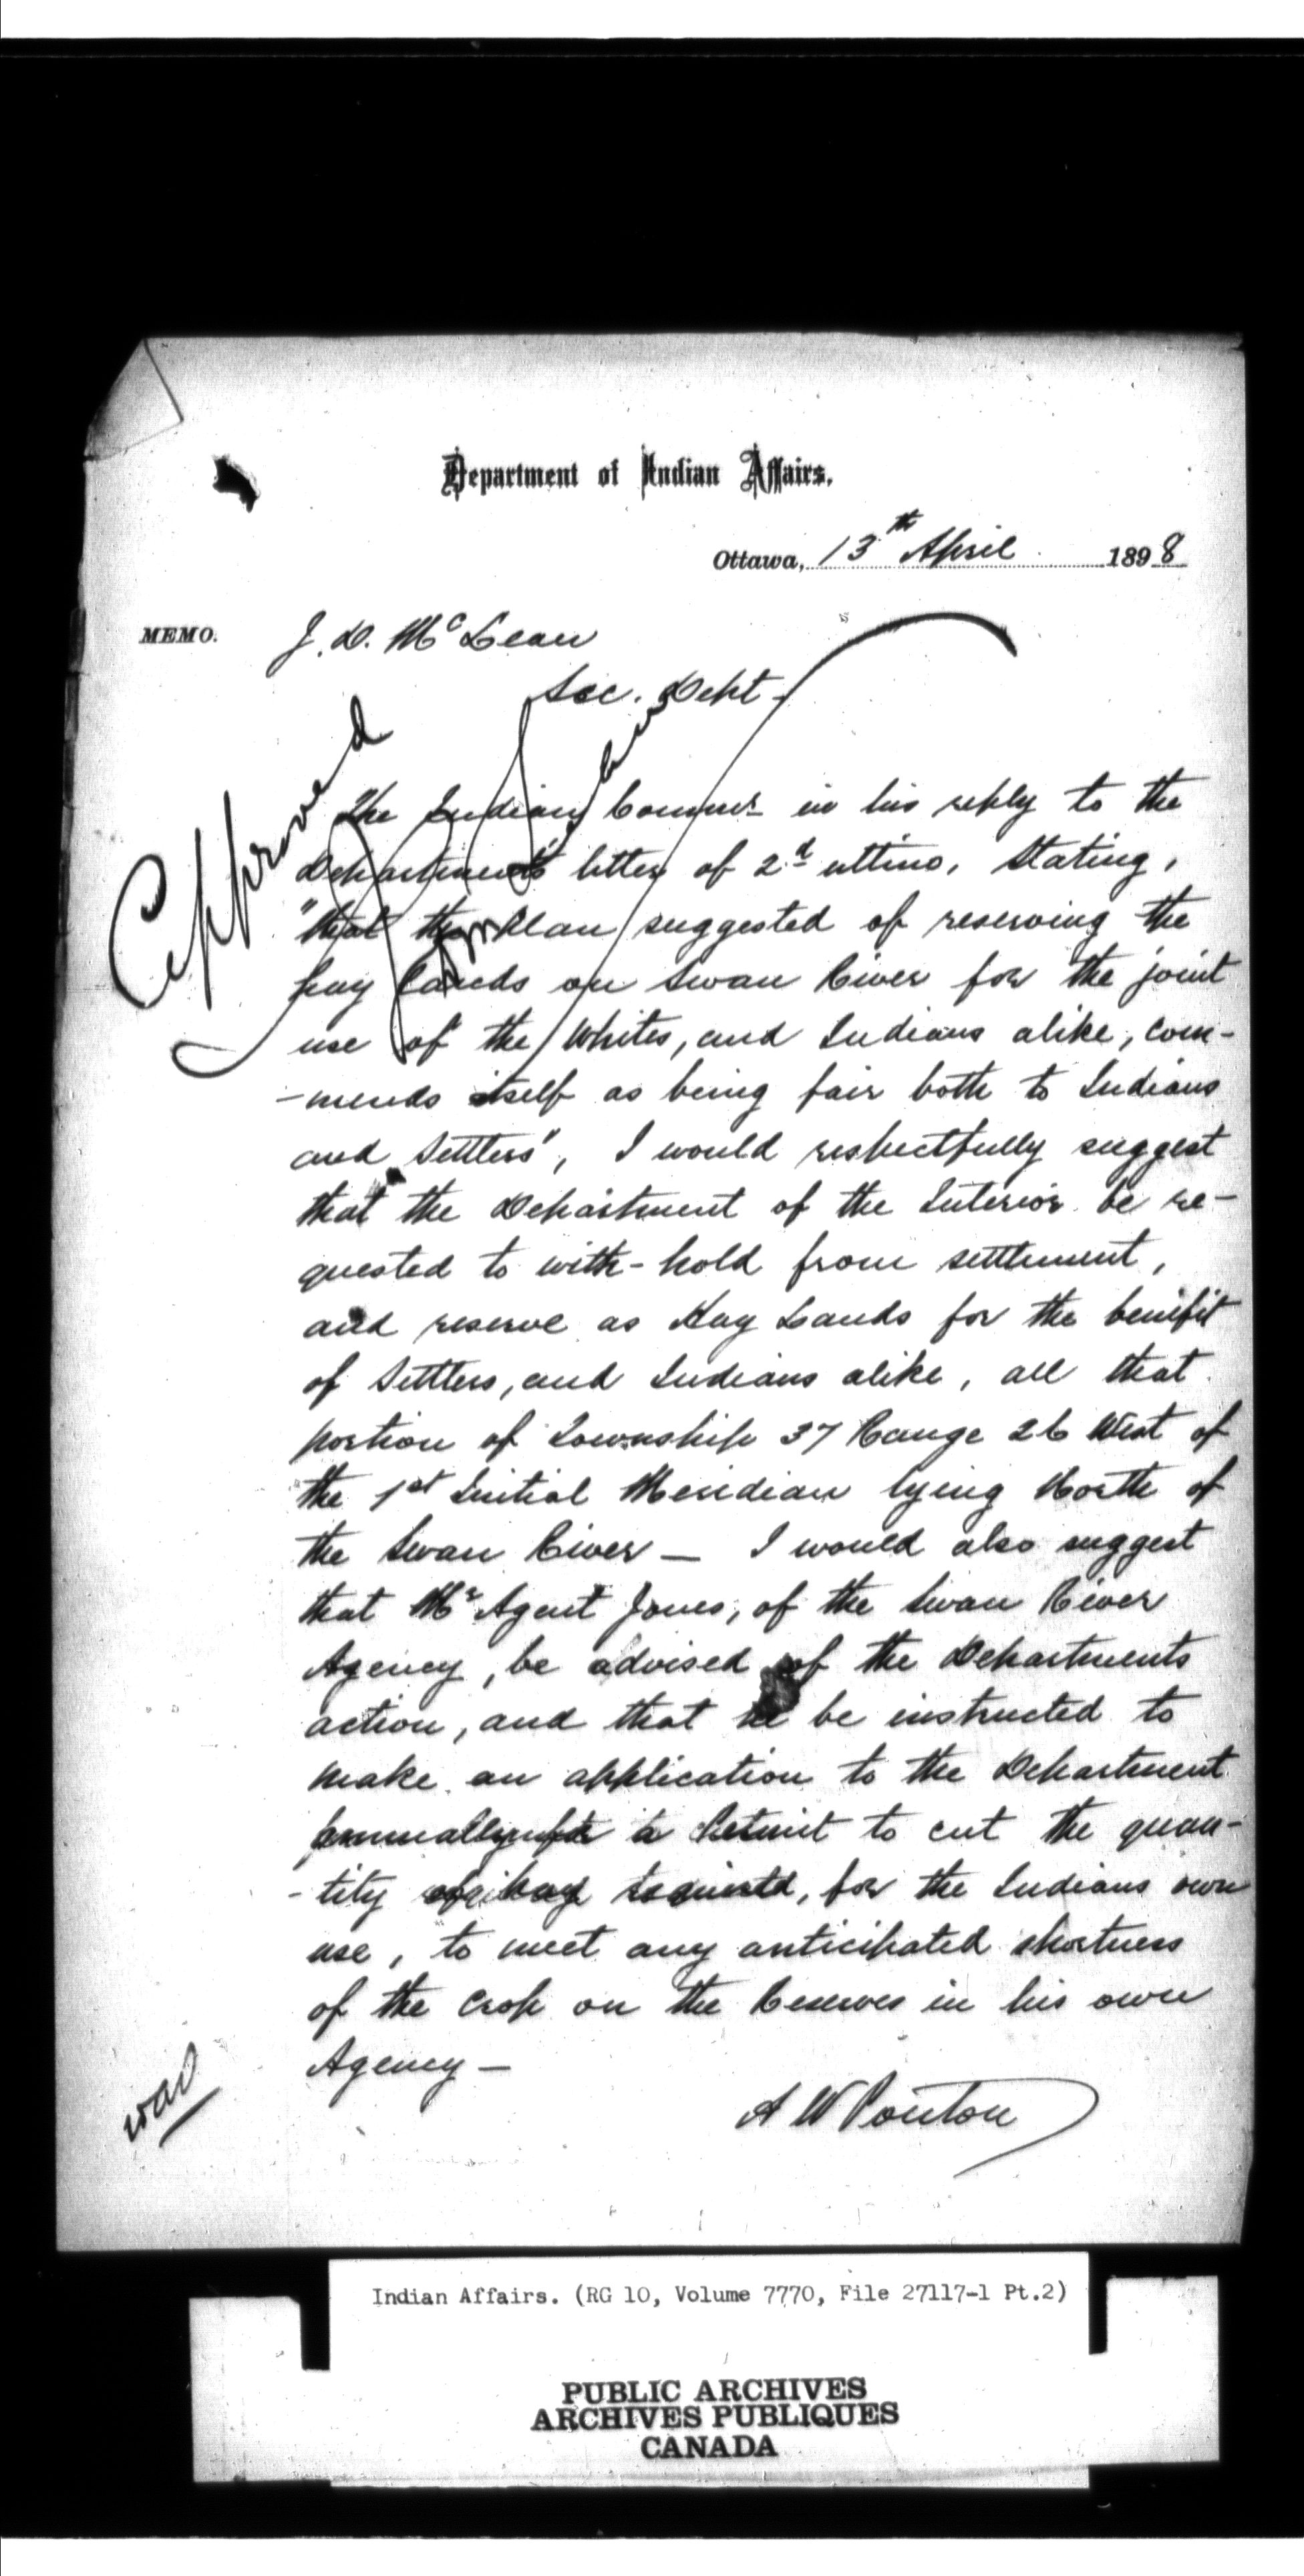 Department of Indian Affairs.
Ottawa, 13th April 1898
MEMO.
J. D. McLean
Sec. Dept -
Approved
The Indian Commr in his reply to the
Department's letter of 2d ultimo, stating,
"that the Plan suggested of reserving the
hay lands on Swan River for the joint
use of the Whites, and Indians alike, com-
-mends itself as being fair both to Indians
and Settlers", I would respectfully suggest
that the Department of the Interior be re-
quested to with-hold from settlement,
and reserve as Hay Lands for the benifit
of Settlers, and Indians alike, all that
portion of Township 37 Range 26 West of
the 1st Initial Meridian lying North of
the Swan River — I would also suggest
that Mr Agent Jones, of the Swan River
Agency, be advised of the Departments
action, and that he be instructed to
make an application to the Department
annually for a Permit to cut the quan-
-tity of hay required, for the Indians own
use, to meet any anticipated shortness
of the crop on the Reserves in his own
Agency —
A W Ponton
Indian Affairs. (RG 10, Volume 7770, File 27117-1 Pt.2)
PUBLIC ARCHIVES
ARCHIVES PUBLIQUES
CANADA